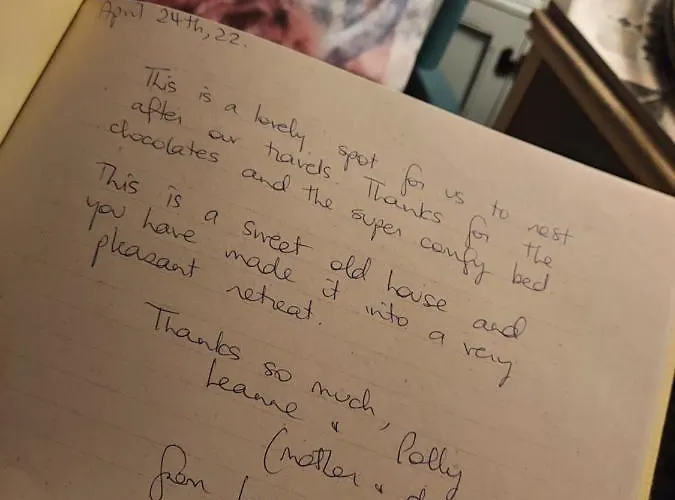 April 24th, 22.
This is a lovely spot for us to rest
after our travels. Thanks for the
chocolates and the super comfy bed.
This is a sweet old house and
you have made it into a very
pleasant retreat.
Thanks so much,
Leanne & Polly
(mother &
from